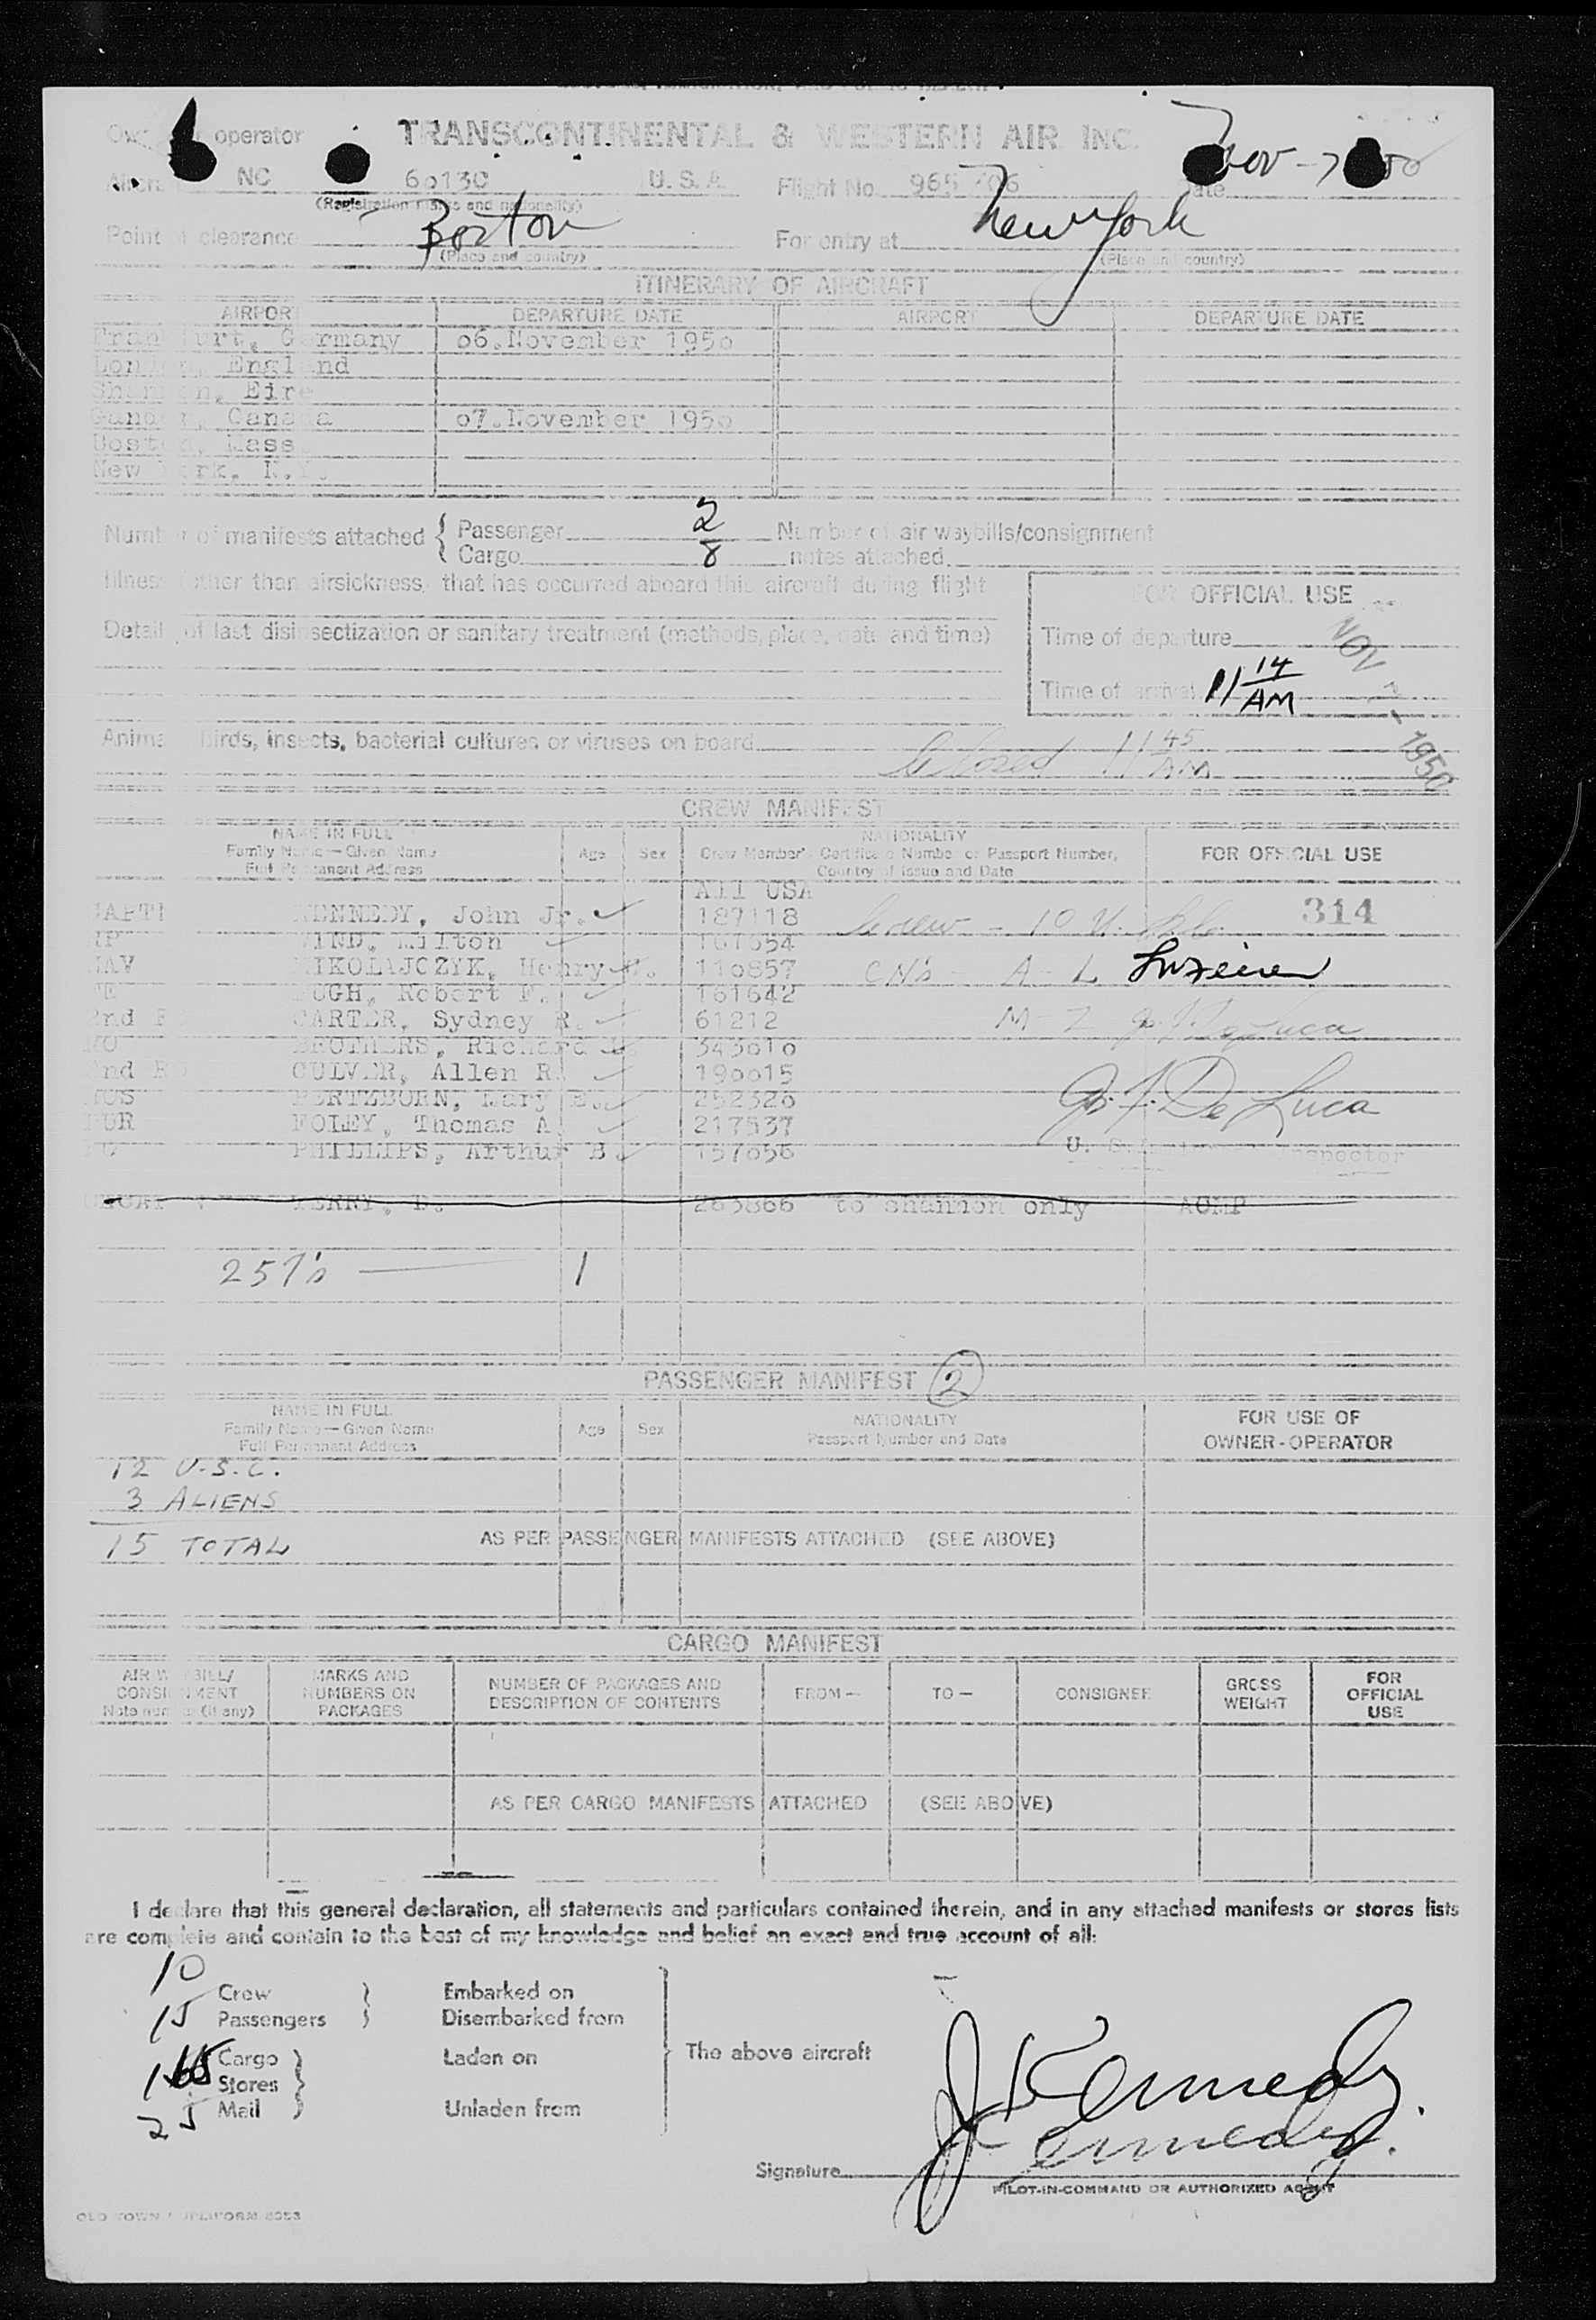 operator TRANSCONTINENTAL & WESTERN AIR INC.
NC 6o13C U.S.A. Flight No. 965 706 Date Nov-7 50
(Registration marks and nationality)
Point of clearance Boston For entry at New York
(Place and country) (Place and country)
ITINERARY OF AIRCRAFT
AIRPORT DEPARTURE DATE AIRPORT DEPARTURE DATE
Frankfurt, Germany o6.November 195o
London, England
Shannon, Eire
Gander, Canada o7.November 195o
Boston, Mass
New York, N.Y.
Number of manifests attached { Passenger 2 Number of air waybills/consignment
Cargo 8 notes attached
Illness (other than airsickness) that has occurred aboard this aircraft during flight
FOR OFFICIAL USE
Details of last disinsectization or sanitary treatment (methods, place, date and time)
Time of departure
NOV 7 - 1950
Time of arrival 11 14 AM
Animals, birds, insects, bacterial cultures or viruses on board
Closed 11 45 AM
CREW MANIFEST
NAME IN FULL
Family Name — Given Name
Full Permanent Address
Age Sex
NATIONALITY
Crew Member's Certificate Number or Passport Number,
Country of Issue and Date
FOR OFFICIAL USE
All USA
KENNEDY, John Jr. 187118 314
HIND, Milton
MIKOLAJCZYK, Henry 11o857 CN's - A - L
PUGH, Robert F. 161642
2nd CARTER, Sydney R. 61212 M - Z
BROTHERS, Richard
2nd CULVER, Allen R. 19oo15
HERTZBORN, Mary E. 252326 J. F. De Luca
PUR FOLEY, Thomas A. 217537
PHILLIPS, Arthur B. 157o56 U. S. Inspector
PERRY, D. to shannon only
257's — 1
PASSENGER MANIFEST 2
NAME IN FULL
Family Name — Given Name
Full Permanent Address
Age Sex
NATIONALITY
Passport Number and Date
FOR USE OF
OWNER-OPERATOR
12 U.S.C.
3 ALIENS
15 TOTAL AS PER PASSENGER MANIFESTS ATTACHED (SEE ABOVE)
CARGO MANIFEST
AIR WAYBILL/
CONSIGNMENT
Note number (if any)
MARKS AND
NUMBERS ON
PACKAGES
NUMBER OF PACKAGES AND
DESCRIPTION OF CONTENTS
FROM—
TO—
CONSIGNEE
GROSS
WEIGHT
FOR
OFFICIAL
USE
AS PER CARGO MANIFESTS ATTACHED (SEE ABOVE)
I declare that this general declaration, all statements and particulars contained therein, and in any attached manifests or stores lists
are complete and contain to the best of my knowledge and belief an exact and true account of all:
10 Crew } Embarked on
15 Passengers } Disembarked from
Cargo } Laden on The above aircraft
Stores }
Mail } Unladen from
J Kennedy.
J Kennedy.
Signature
PILOT-IN-COMMAND OR AUTHORIZED AGENT